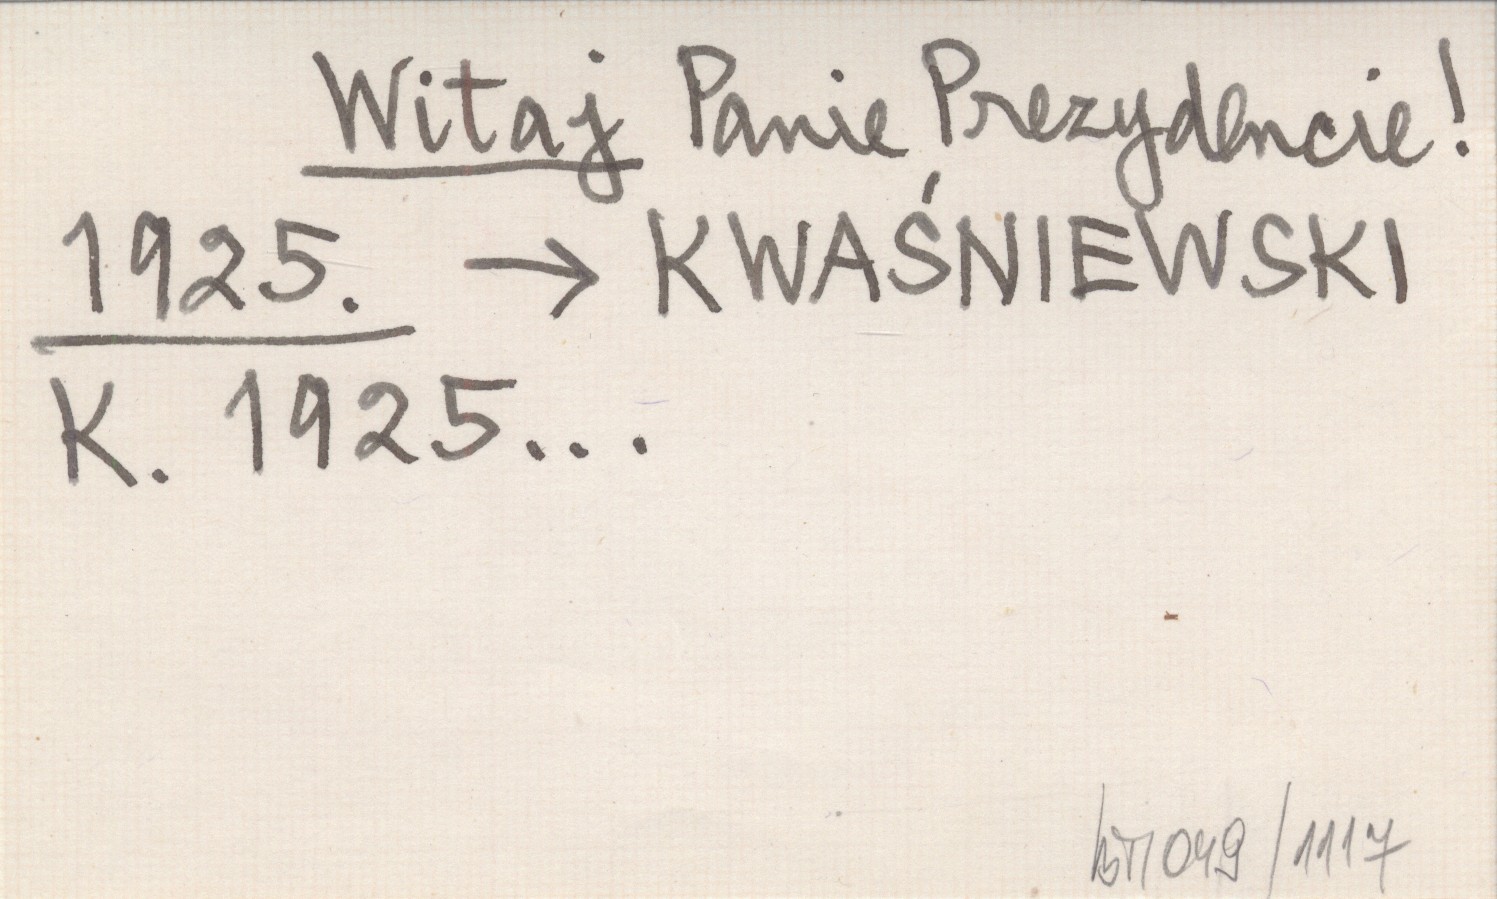 Witaj Panie Prezydencie!
1925. → KWAŚNIEWSKI
K. 1925...
049/1117